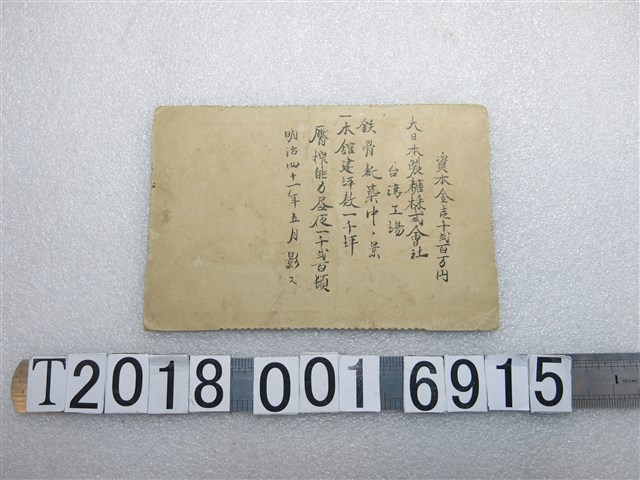 資本金壱千弐百万円
大日本製糖株式會社
台湾工場
鉄骨新築中ノ景
一本館建坪数一千坪
一搾能力昼夜一千弐百頓
明治四十一年五月影ス
T20180016915
1